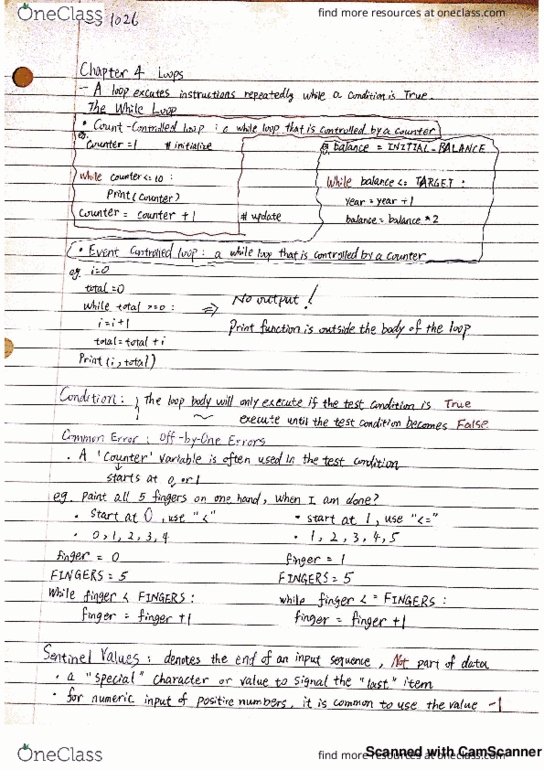 OneClass
find more resources at oneclass.com
1026
Chapter 4 Loops
- A loop excutes instructions repeatedly while a condition is True.
The While Loop
• Count-Controlled loop : a while loop that is controlled by a counter
eg. Counter = 1 # initialize
While counter <= 10 :
Print (counter)
Counter = counter + 1 # update
eg. balance = INITIAL-BALANCE
While balance <= TARGET :
year = year + 1
balance = balance * 2
• Event Controlled loop : a while loop that is controlled by a counter
eg. i=0
total = 0
while total >= 0 :
i = i + 1
total = total + i
Print (i, total)
=> No output !
Print function is outside the body of the loop
Condition : The loop body will only execute if the test condition is True
execute until the test condition becomes False
Common Error : Off-by-One Errors
• A 'Counter' variable is often used in the test condition
starts at 0 or 1
eg. paint all 5 fingers on one hand, when I am done?
• Start at 0, use "<"
• 0, 1, 2, 3, 4
finger = 0
FINGERS = 5
While finger < FINGERS :
finger = finger + 1
• start at 1, use "<="
• 1, 2, 3, 4, 5
finger = 1
FINGERS = 5
while finger <= FINGERS :
finger = finger + 1
Sentinel Values : denotes the end of an input sequence, Not part of data
• a "special" character or value to signal the "last" item
• for numeric input of positive numbers, it is common to use the value -1
OneClass
find more resources at oneclass.com
Scanned with CamScanner